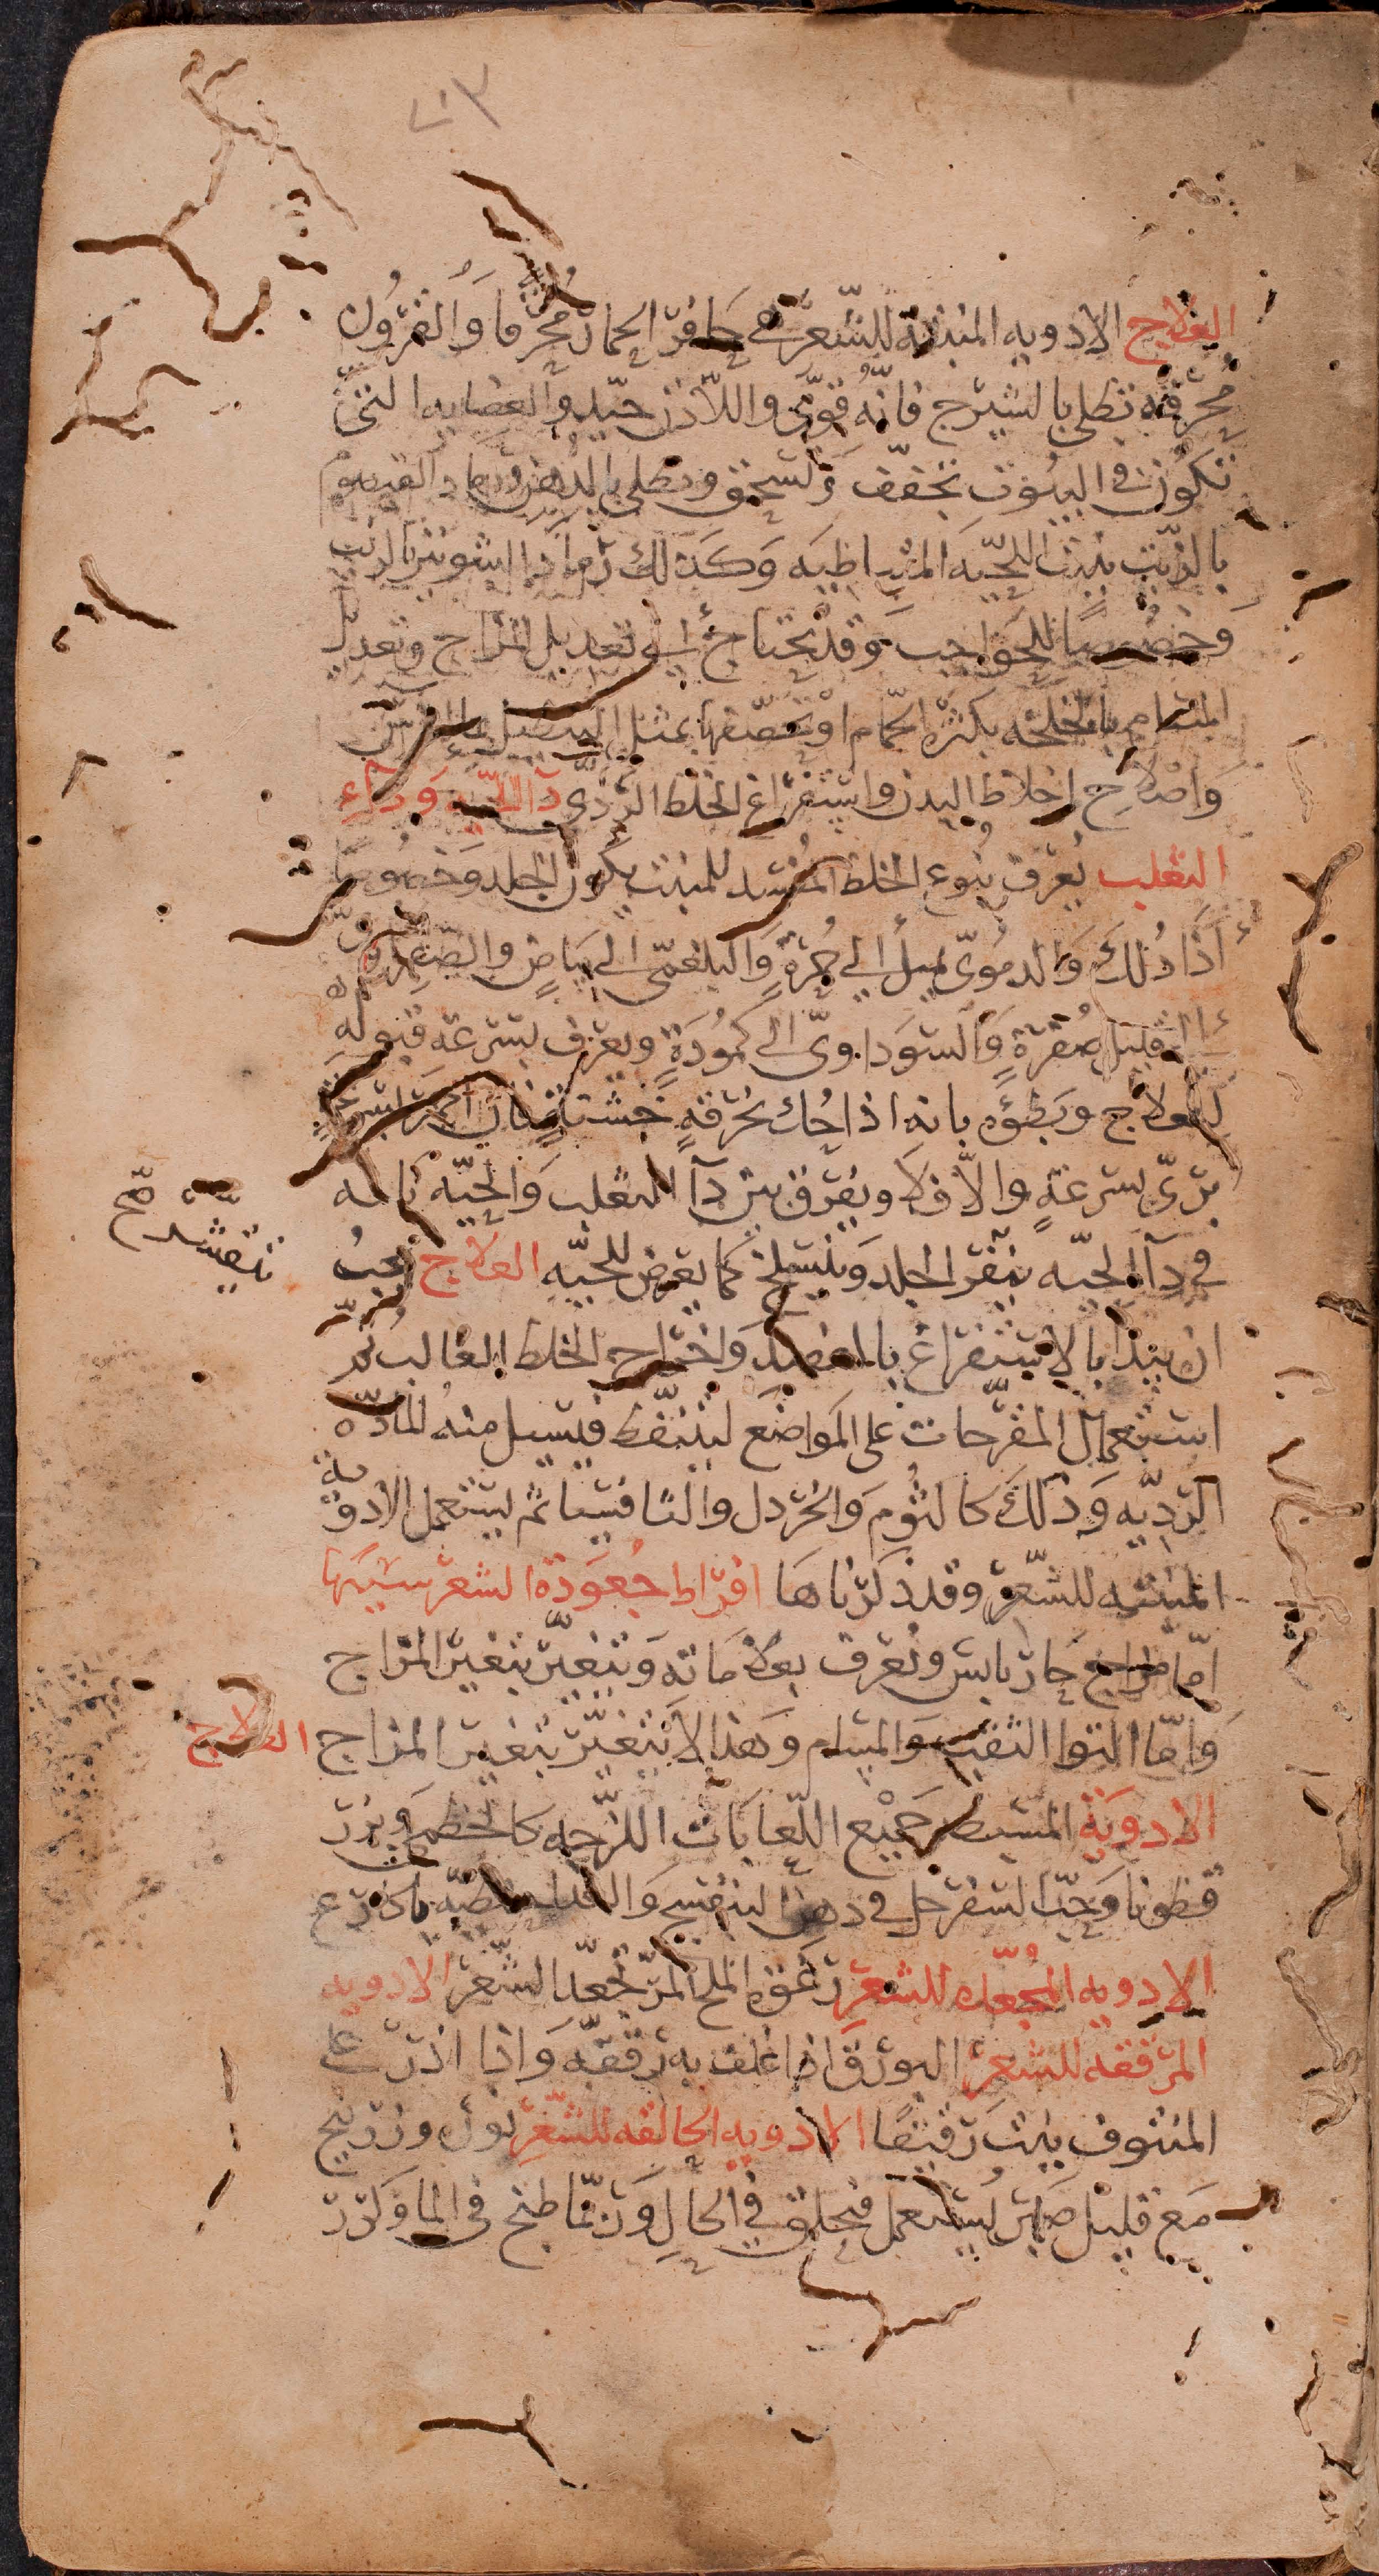 ٢١٣
العلاج الادويه المنبته للشعر هي حافر الحمار محرقا والقرون
محرقه تطلى بالشيرج فانه قوي واللاذن جيد والعضايه التي
تكون في البيوت تجفف وتسحق وتطلى بالدهن ورماد القيصوم
بالزيت ينبت اللحيه المتباطيه وكذلك رماد الشونيز بالزيت
وخصوصا للحواجب وقد يحتاج الى تعديل المزاج وتعديل
المسام باتخلخه بكثره الحمام او تخصفها بمثل
واصلاح اخلاط البدن واستفراغ الخلط الردي دآ الحيه ودآء
الثعلب يعرف نوع الخلط المفسد للمنبت بلون الجلد وخصوصا
اذا دلك والدموي يميل الى حمرة والبلغمي الى بياض والصفراوي
الى قليل صفرة والسوداوي الى كمودة ويعرف بسرعه قبوله
للعلاج وبطؤه بانه اذا حك بخرقة خشنة فان احمر بسرعة
بري بسرعة والا فلا ويفرق بين دآ الثعلب والحيه بانه
في دآ الحيه ينقر الجلد وينسلخ كما يعرض للحيه العلاج يجب
يتقشر صح
ان يبدا بالاستفراغ بالفصد واخراج الخلط الغالب ثم
استعمال المقرحات على المواضع ليتنفط فيسيل منه المادة
الرديه وذلك كالثوم والخردل والتافسيا ثم ليستعمل الادوية
المنبته للشعر وقد ذكرناها افراط جعودة الشعر سببها
اما مزاج حار يابس وتعرف بعلاماته وتتغير بتغير المزاج
واما التوا الثقب والمسام وهذا لا يتغير بتغير المزاج العلاج
الادوية المسبطه جميع اللعابات اللزجه كالخطمي وبزر
قطونا وحب السفرجل في دهن البنفسج
الادويه المجعده للشعر رغوة الملح المر تجعد الشعر الادويه
المرققه للشعر البورق اذا غلف به رققه واذا اذر على
المنتوف ينبت رقيقا الادويه الحالقه للشعر نورة وزرنيخ
مع قليل صبر يستعمل فيحلق في الحال وربما طبخ في الما وكرر